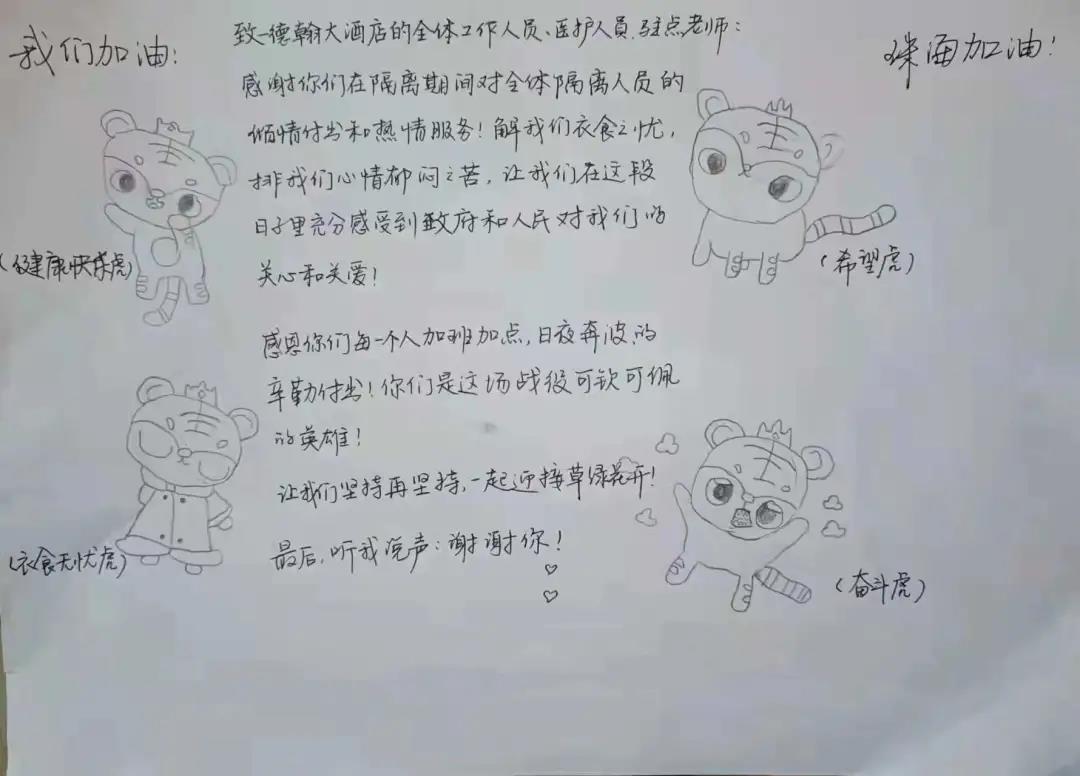 我们加油:
珠海加油!
致一德翰大酒店的全体工作人员、医护人员、驻点老师:
感谢你们在隔离期间对全体隔离人员的
倾情付出和热情服务!解我们衣食之忧,
排我们心情郁闷之苦,让我们在这段
日子里充分感受到政府和人民对我们的
关心和关爱!
(健康快乐虎)
(希望虎)
感恩你们每一个人加班加点,日夜奔波的
辛勤付出!你们是这场战役可钦可佩
的英雄!
让我们坚持再坚持,一起迎接草绿花开!
最后,听我说声:谢谢你!
(衣食无忧虎)
(奋斗虎)